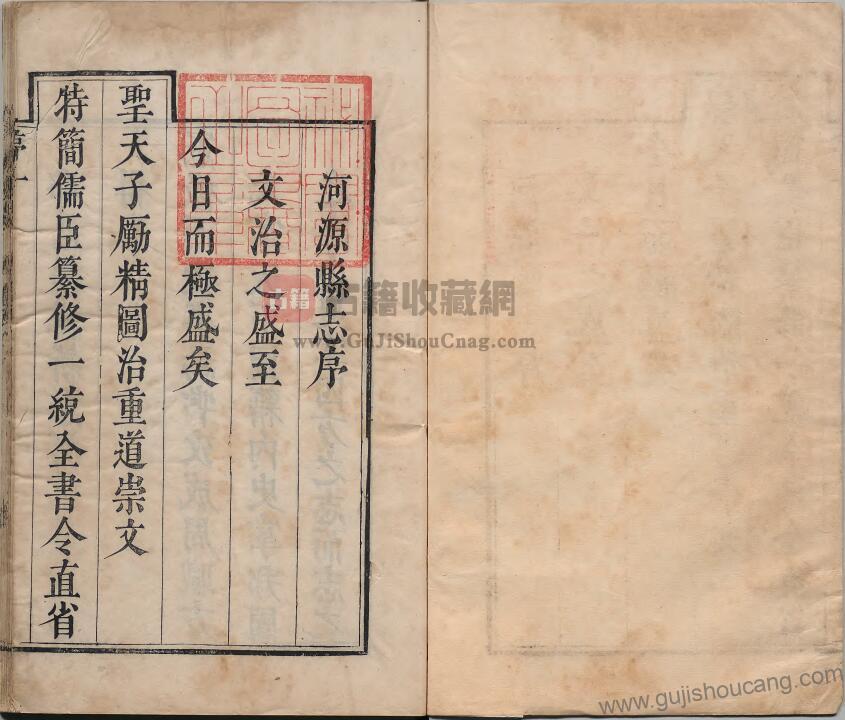 河源縣志序
文治之盛至
今日而極盛矣
聖天子勵精圖治重道崇文
特簡儒臣纂修一統全書令直省
序一
古籍
古籍收藏網
www.GuJiShouCang.com
www.gujishoucang.com